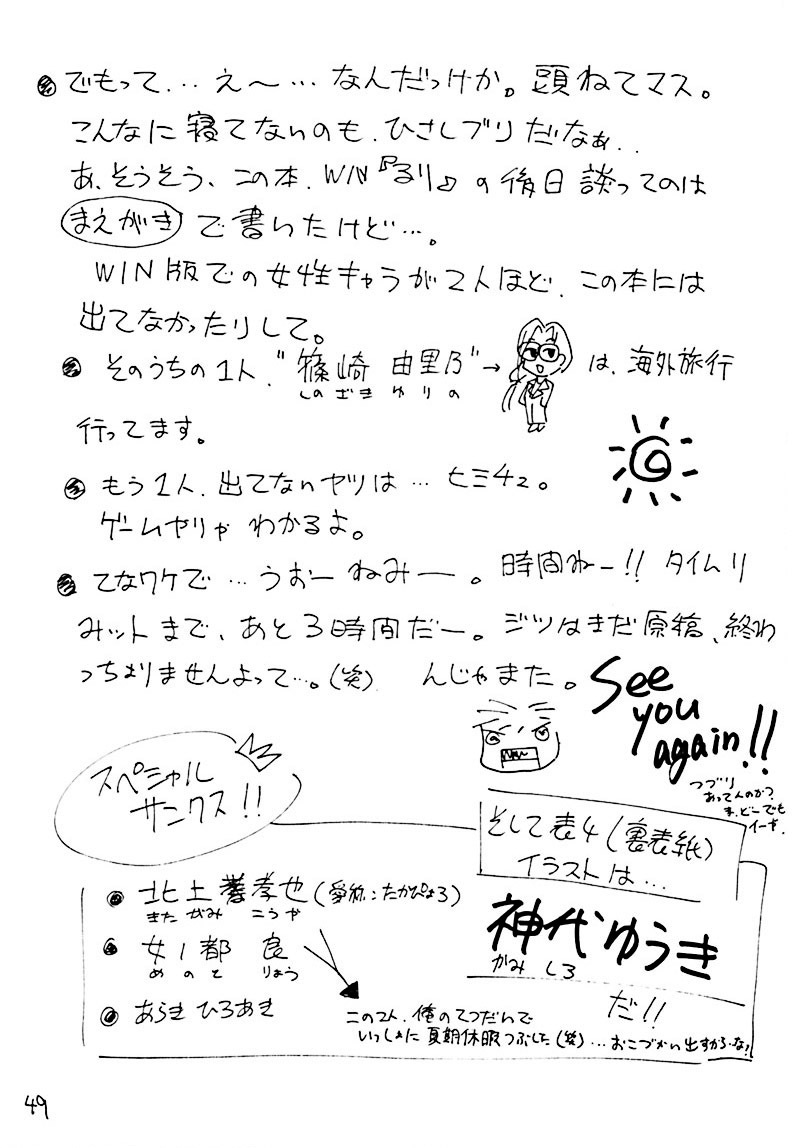 でもって…え〜…なんだっけか。頭ねてマス。
こんなに寝てないのも、ひさしブリだなぁ..
あ、そうそう、この本、WIN『るり』の後日談ってのは
まえがきで書いたけど…。
WIN版での女性キャラが2人ほど、この本には
出てなかったりして。
そのうちの1人、"篠崎 由里乃"→は、海外旅行
しのざき ゆりの
行ってます。
もう1人、出てないヤツは…ヒミチュ。
ゲームヤリゃわかるよ。
てなワケで…うおーねみー。時間ねー!! タイムリ
みットまで、あと3時間だー。ジツはまだ原稿、終わ
っちょりませんよって…。(笑) んじゃまた。
See
you
again!!
つづり
あってんのか?
ま、どーでも
イーや。
スペシャル
サンクス!!
そして表4(裏表紙)
イラストは…
神代ゆうき
かみしろ
だ!!
北上 孝也(愛称:たかぴょろ)
きたがみ こうや
女ノ都 良
めのと りょう
あらき ひろあき
この2人、俺のてつだいで
いっしょに夏期休暇つぶした(笑)…おこづかい出すからな!
49